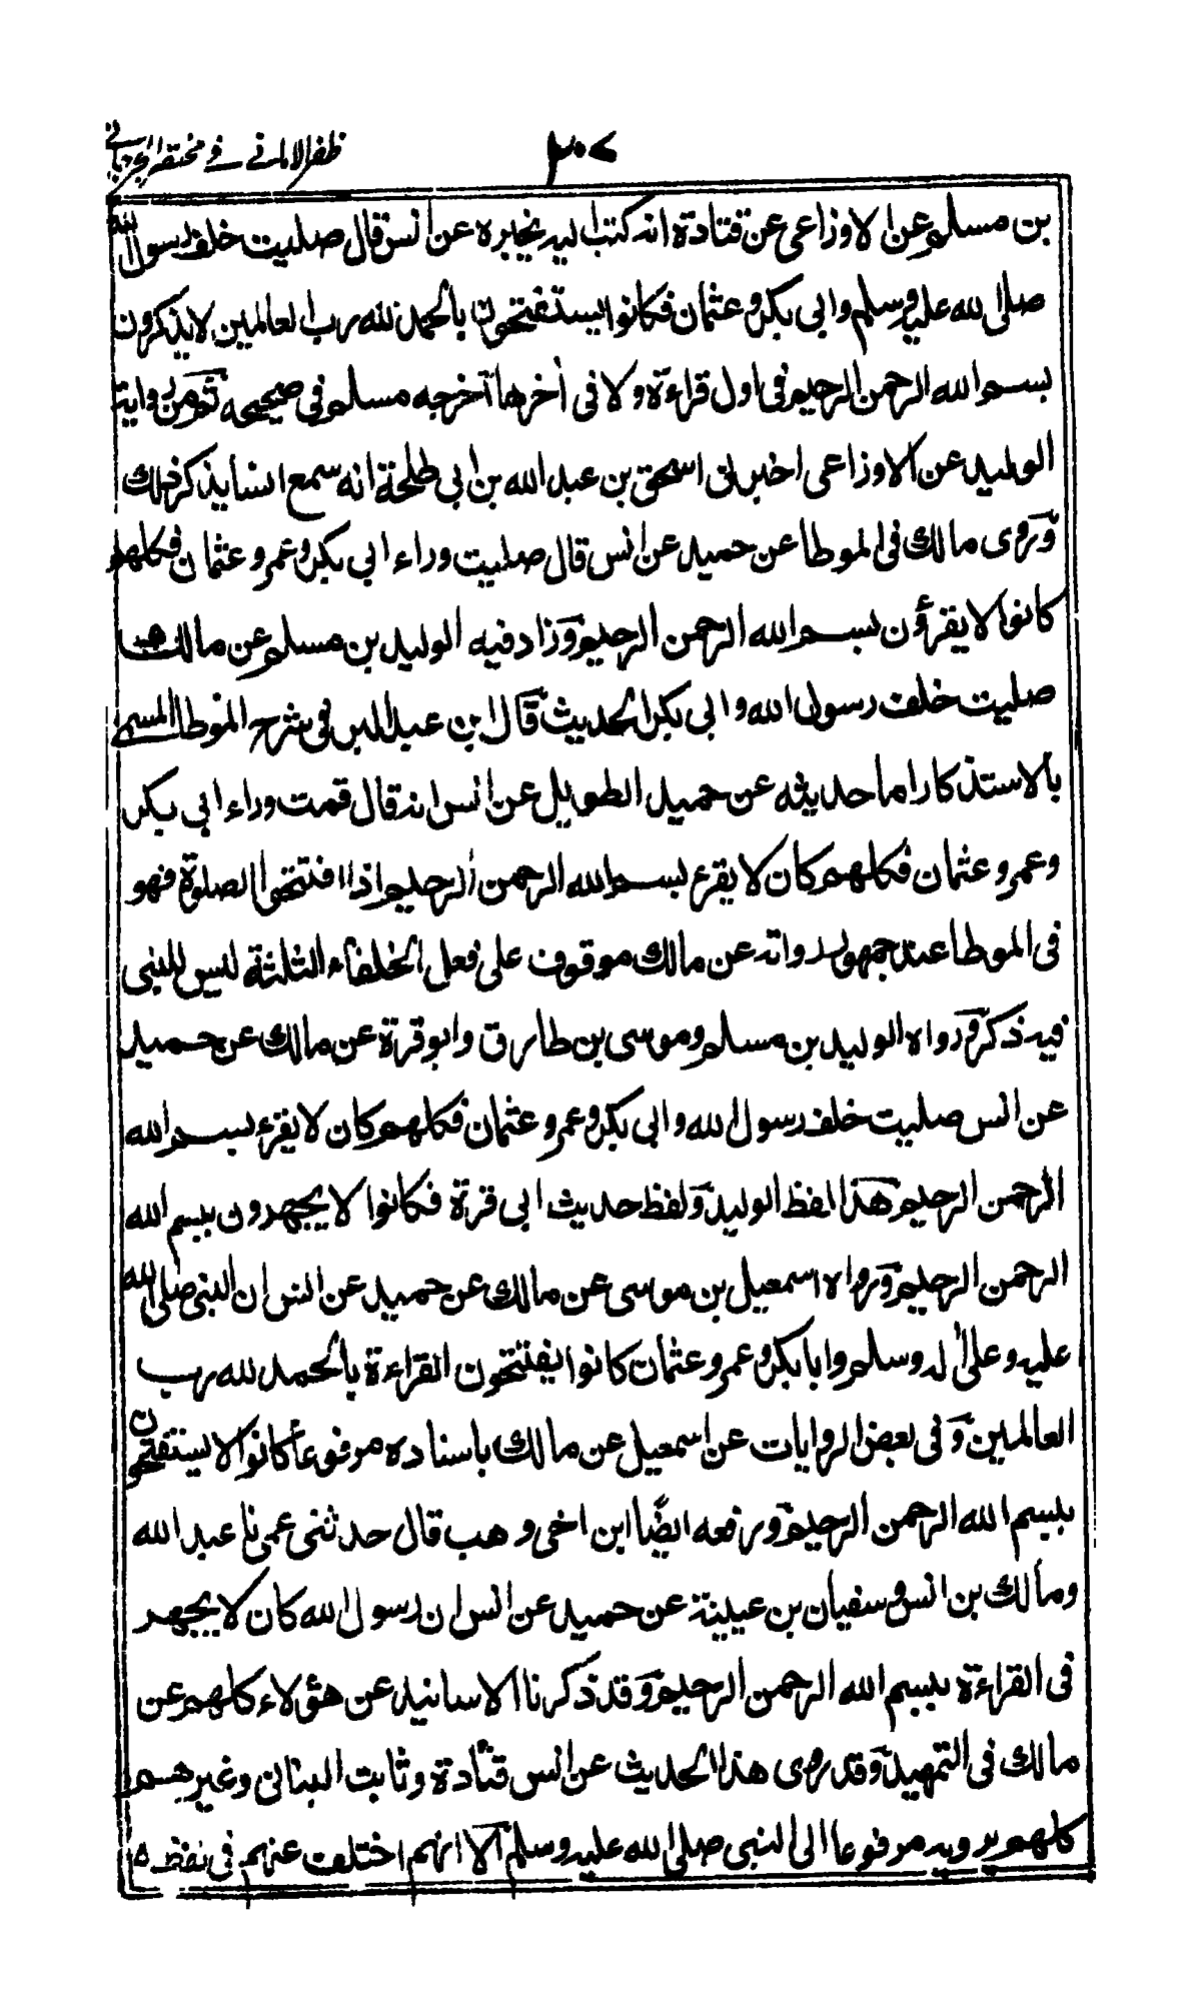 ظفر الامانے فے مختصر الجرجانے ٢٠٧
بن مسلم عن الاوزاعى عن قتادة انه كتب اليه يخبره عن انس قال صليت خلف رسول الله
صلى الله عليه وسلم وابى بكر وعثمان فكانوا يستفتحون بالحمد لله رب العالمين لا يذكرون
بسم الله الرحمن الرحيم فى اول قراءة ولا فى أخرها آخرجه مسلم فى صحيحه ثم من رواية
الوليد عن الاوزاعى اخبرنى اسحق بن عبد الله بن ابى طلحة انه سمع انسا يذكر ذلك
وروى مالك فى الموطا عن حميد عن انس قال صليت وراء ابى بكر وعمر وعثمان فكلهم
كانوا لا يقرؤن بسم الله الرحمن الرحيم وزاد فيه الوليد بن مسلم عن مالك
صليت خلف رسول الله وابى بكر الحديث قال ابن عبد البر فى شرح الموطا المسمے
بالاستذكار اما حديثه عن حميد الطويل عن انس انه قال قمت وراء ابى بكر
وعمر وعثمان فكلهم كان لا يقرء بسم الله الرحمن الرحيم اذا افتتحوا الصلوة فهو
فى الموطا عند جمهور رواته عن مالك موقوف على فعل الخلفاء الثلثة ليس للنبى
فيه ذكر ورواه الوليد بن مسلم وموسى بن طارق وابو قرة عن مالك عن حميد
عن انس صليت خلف رسول الله وابى بكر وعمر وعثمان فكلهم كان لا يقرء بسم الله
الرحمن الرحيم هذا لفظ الوليد ولفظ حديث ابى قرة فكانوا لا يجهرون ببسم الله
الرحمن الرحيم ورواه اسمعيل بن موسى عن مالك عن حميد عن انس ان النبى صلى الله
عليه وعلى اله وسلم وابا بكر وعمر وعثمان كانوا يفتتحون القراءة بالحمد لله رب
العالمين وفى بعض الروايات عن اسمعيل عن مالك باسناده مرفوعا كانوا لا يستفتحون
ببسم الله الرحمن الرحيم ورفعه ايضًا ابن اخى وهب قال حدثنى عمى نا عبد الله
ومالك بن انس وسفيان بن عيينة عن حميد عن انس ان رسول الله كان لا يجهر
فى القراءة ببسم الله الرحمن الرحيم وقد ذكرنا الاسانيد عن هؤلاء كلهم عن
مالك فى التمهيد وقد روى هذا الحديث عن انس قتادة وثابت البنانى وغيرهم
كلهم يرويه مرفوعا الى النبى صلى الله عليه وسلم الا انهم اختلف عنهم فى لفظه